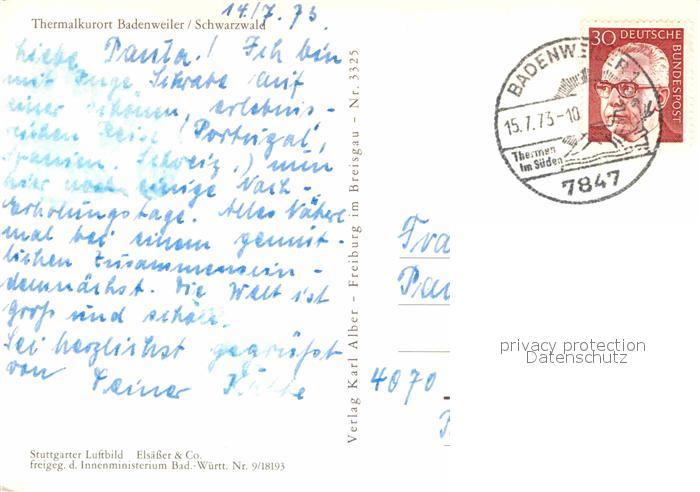 14/7. 73
Thermalkurort Badenweiler / Schwarzwald
Liebe Paula! Ich bin
mit Inge Schwabe auf
einer schönen, erlebnis-
reichen Reise (Portugal,
Spanien, Schweiz,) nun
hier noch einige Nach-
Erholungstage. Alles Nähere
mal bei einem gemüt-
lichen Zusammensein -
demnächst. Die Welt ist
groß und schön.
Sei herzlichst gegrüßt
von Deiner Käthe
Stuttgarter Luftbild Elsäßer & Co.
freigeg. d. Innenministerium Bad.-Württ. Nr. 9/18193
Verlag Karl Alber – Freiburg im Breisgau – Nr. 3325
30 DEUTSCHE
BUNDESPOST
BADENWEILER 1
15.7.73-10
Thermen
im Süden
7847
Fra
Pau
4070
privacy protection
Datenschutz